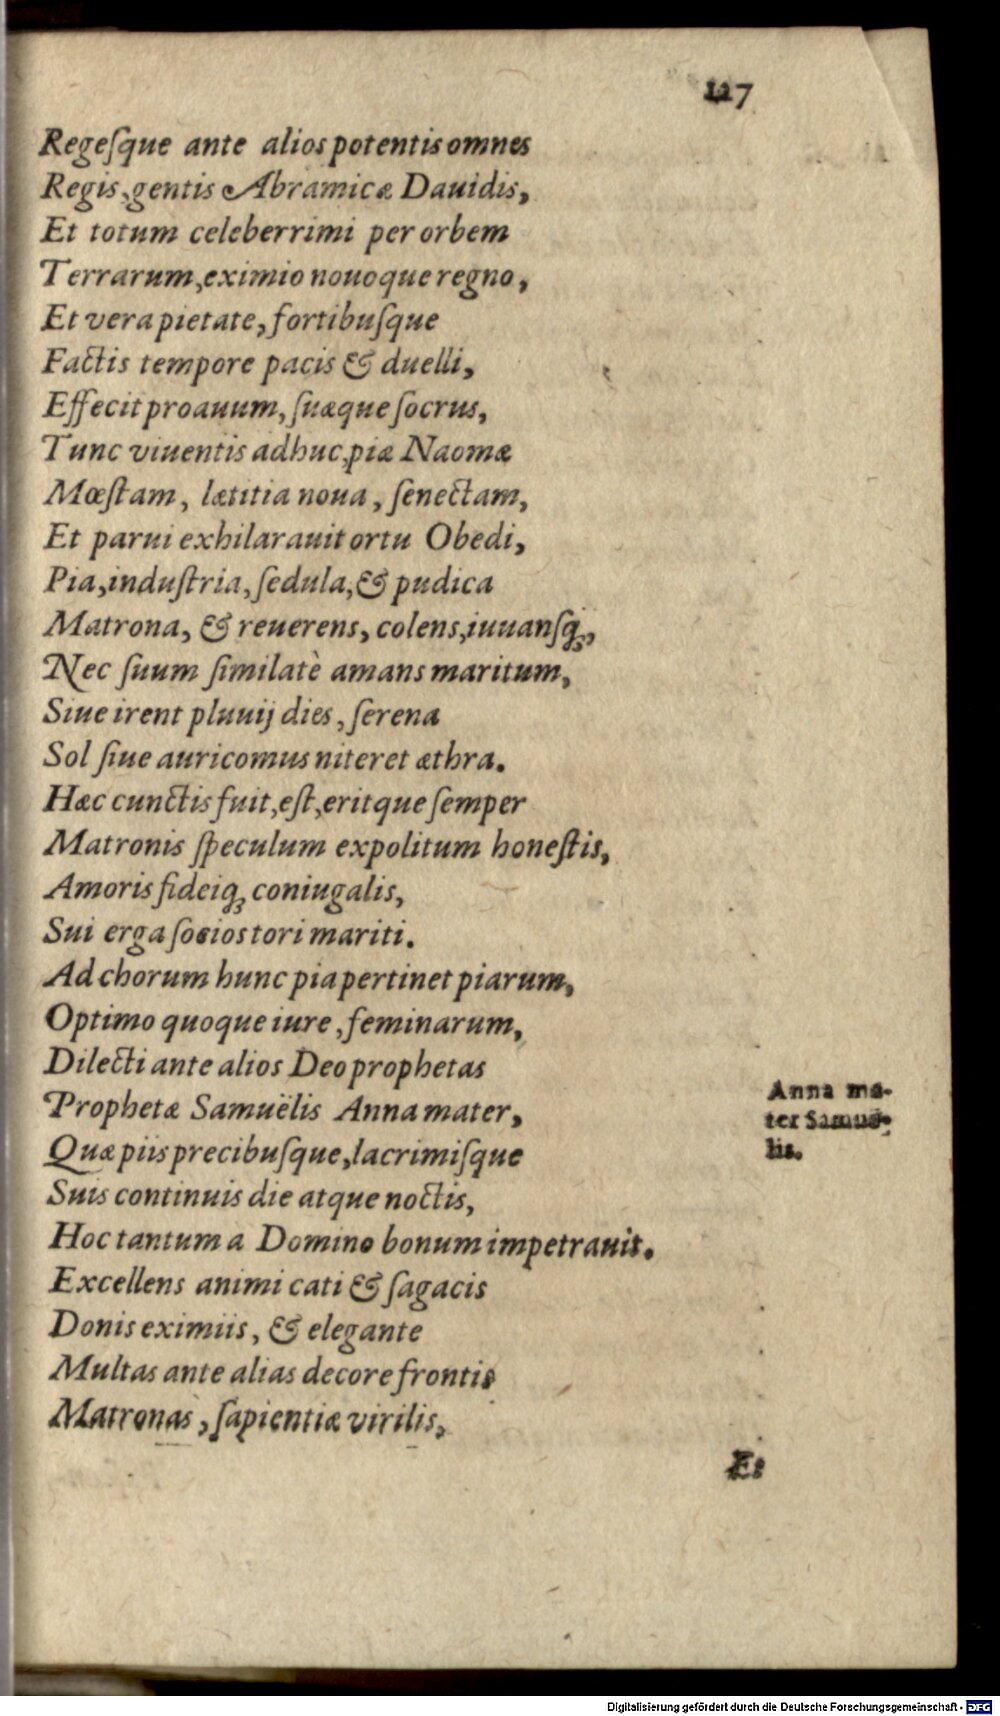 127
Regeſque ante alios potentis omnes
Regis, gentis Abramicæ Dauidis,
Et totum celeberrimi per orbem
Terrarum, eximio nouoque regno,
Et vera pietate, fortibuſque
Factis tempore pacis & duelli,
Effecit proauum, ſuæque ſocrus,
Tunc viuentis adhuc, piæ Naomæ
Mœſtam, lætitia noua, ſenectam,
Et parui exhilarauit ortu Obedi,
Pia, induſtria, ſedula, & pudica
Matrona, & reuerens, colens, iuuanſq́;,
Nec ſuum ſimilatè amans maritum,
Siue irent pluuij dies, ſerena
Sol ſiue auricomus niteret æthra.
Hæc cunctis fuit, eſt, eritque ſemper
Matronis ſpeculum expolitum honeſtis,
Amoris fideiq; coniugalis,
Sui erga ſocios tori mariti.
Ad chorum hunc pia pertinet piarum,
Optimo quoque iure, feminarum,
Dilecti ante alios Deo prophetas
Prophetæ Samuëlis Anna mater,
Quæ piis precibuſque, lacrimiſque
Suis continuis die atque noctis,
Hoc tantum a Domino bonum impetrauit.
Excellens animi cati & ſagacis
Donis eximiis, & elegante
Multas ante alias decore frontis
Matronas, ſapientiæ virilis,
Anna ma-
ter Samue-
lis.
Et
Digitalisierung gefördert durch die Deutsche Forschungsgemeinschaft - DFG